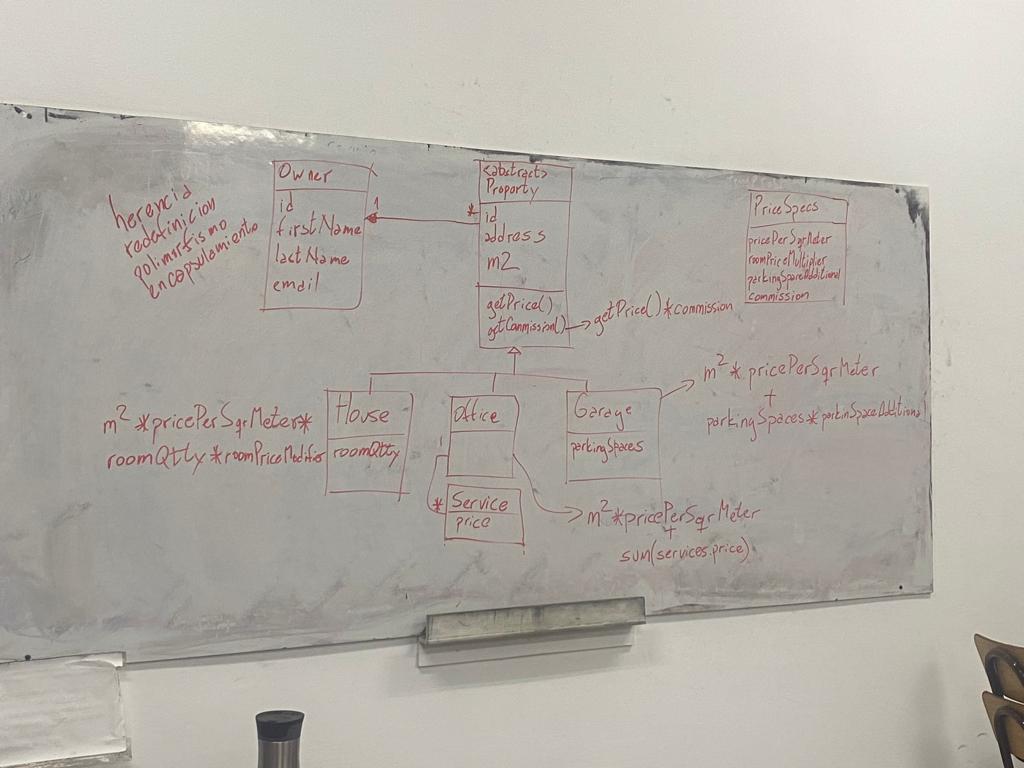 herencia
redefinicion
polimorfismo
encapsulamiento
Owner
id
firstName
lastName
email
1
*
<abstract>
Property
id
address
m2
getPrice()
getCommission()
getPrice()*commission
PriceSpecs
pricePerSqrMeter
roomPriceMultiplier
parkingSpaceAdditional
commission
m² *pricePerSqrMeter*
roomQtty *roomPriceModifier
House
roomQtty
Office
1
*
Service
price
Garage
parkingSpaces
m² * pricePerSqrMeter
+
parkingSpaces * parkinSpaceAdditional
m² *pricePerSqrMeter
+
sum(services.price)